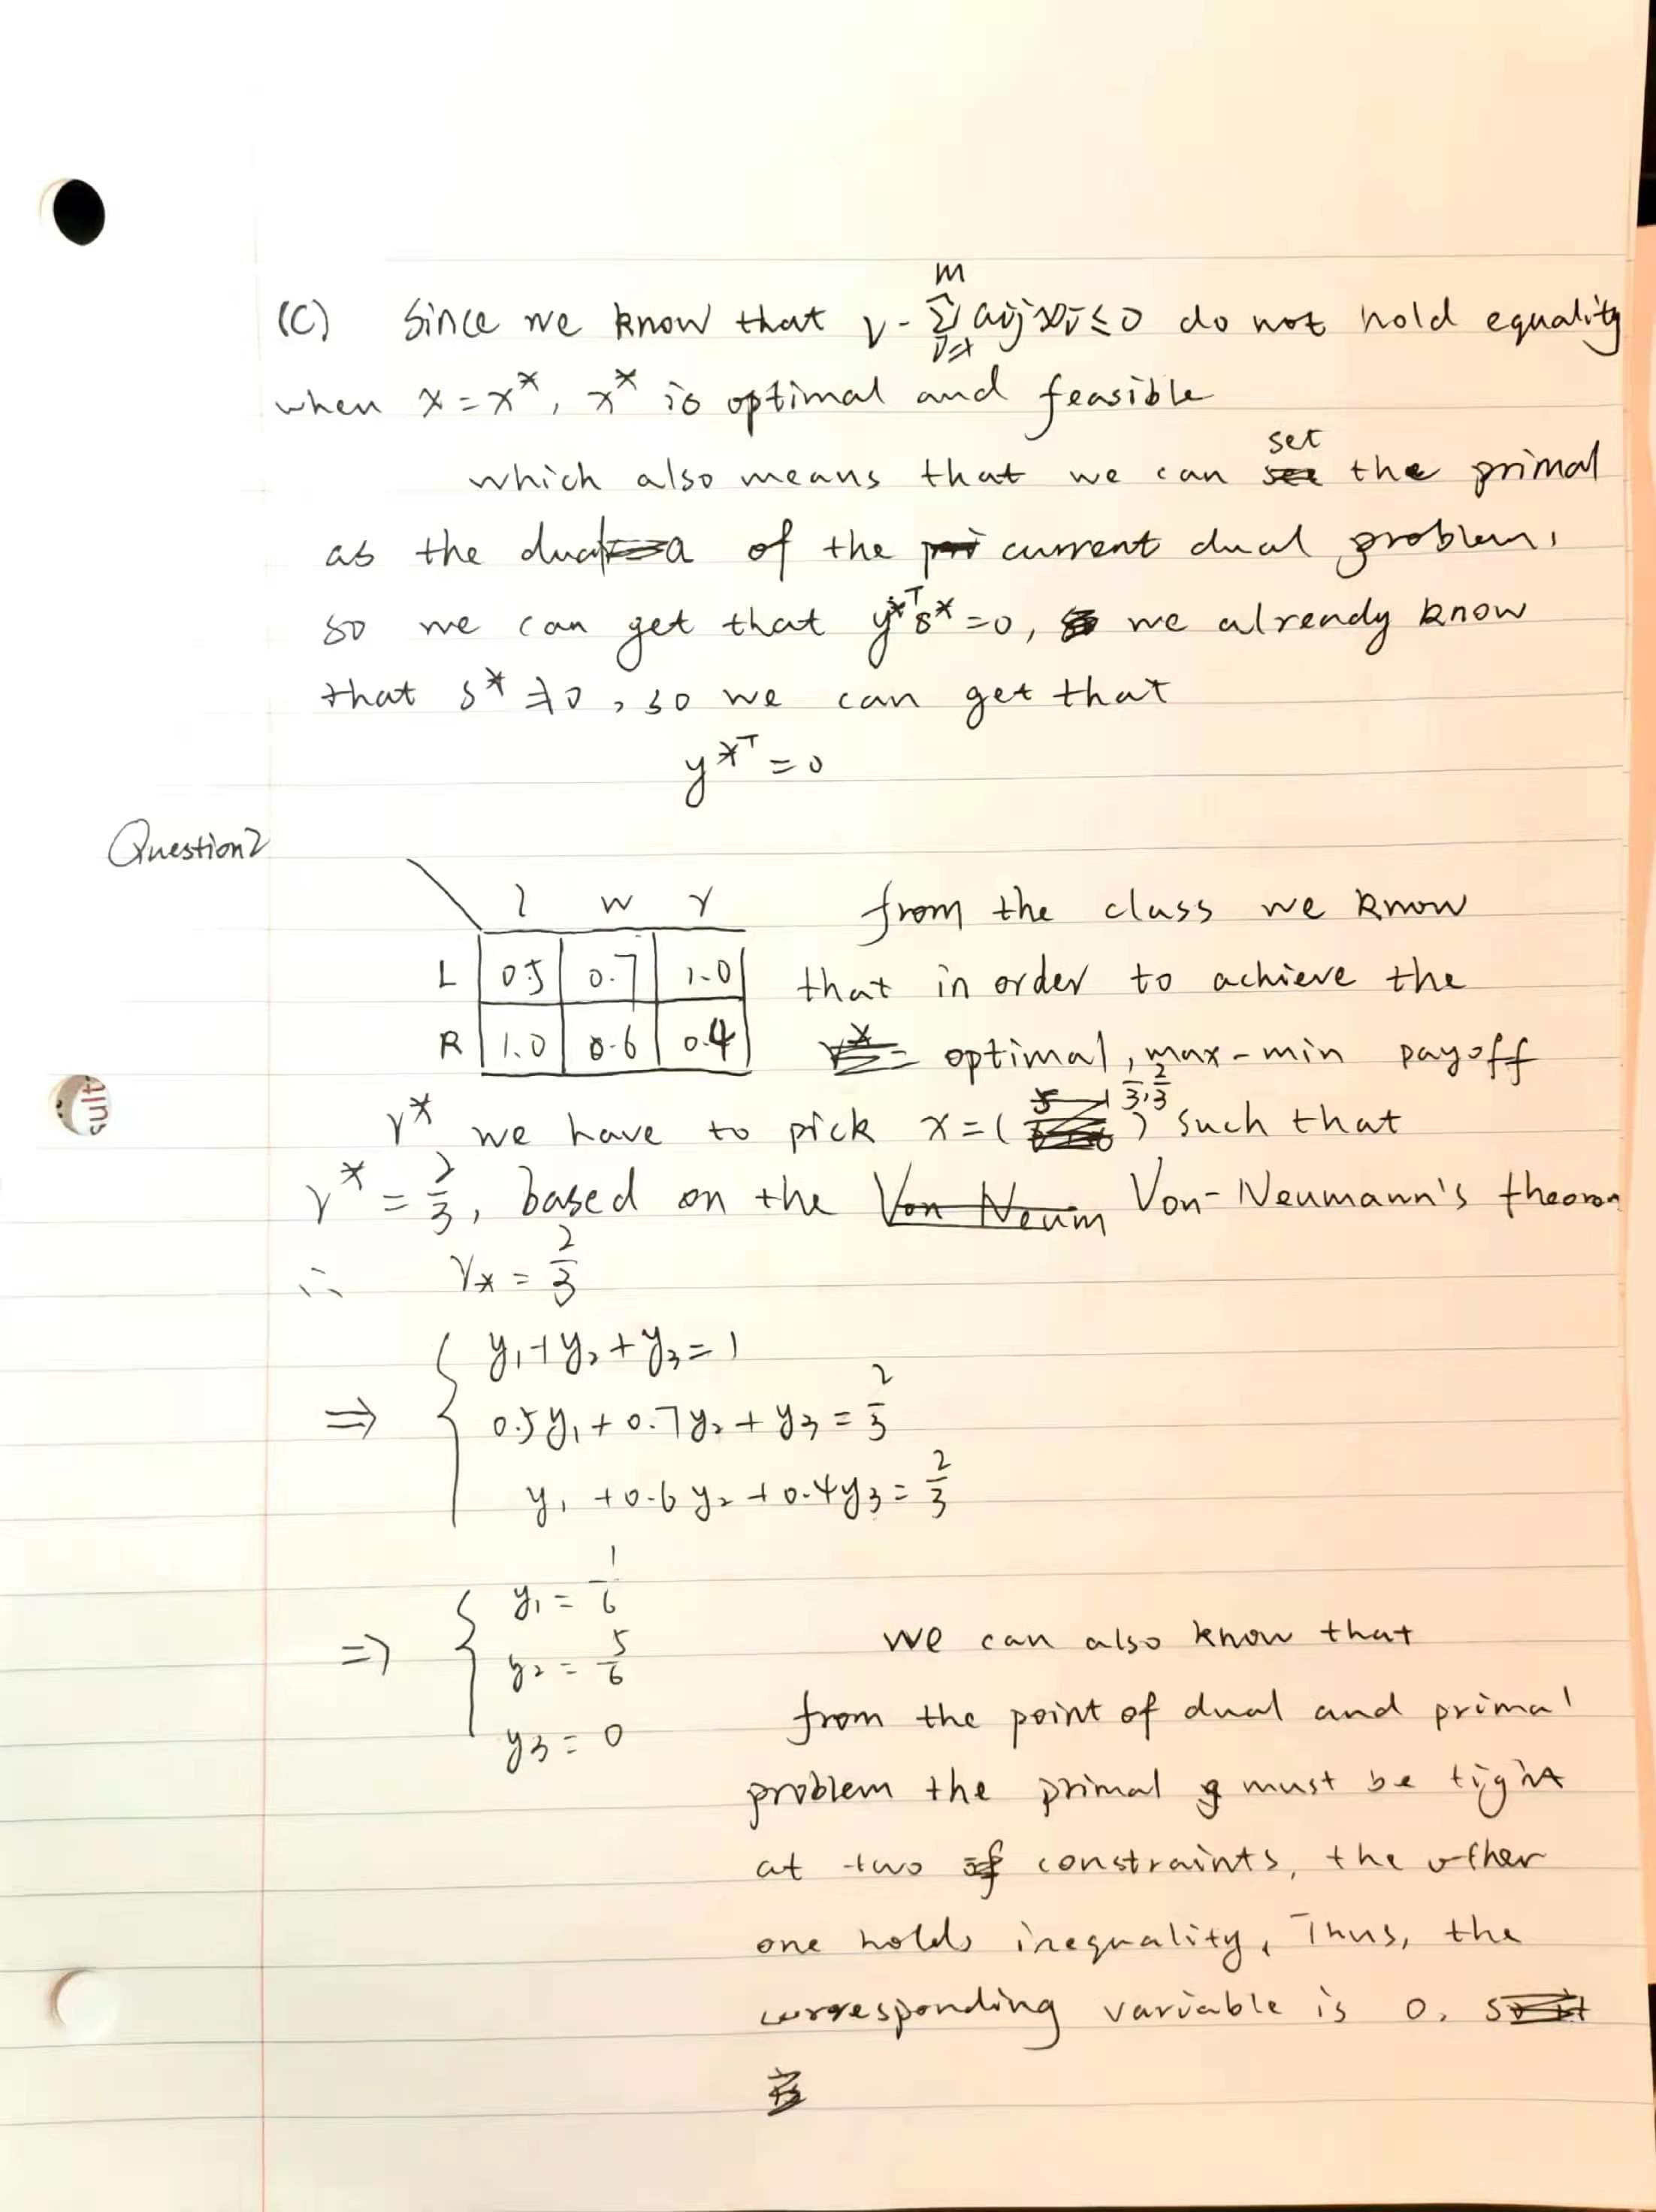 (C) Since we know that v - \sum_{i=1}^{m} aij xi ≤ 0 do not hold equality
when x = x*, x* is optimal and feasible
which also means that we can set the primal
as the dual of the current dual problem,
so we can get that y*ᵀs* = 0, we already know
that s* ≠ 0, so we can get that
y*ᵀ = 0
Question 2
l w r
L 0.5 0.7 1.0
R 1.0 0.6 0.4
from the class we know
that in order to achieve the
optimal, max-min payoff
v* we have to pick x = (1/3, 2/3) such that
v* = 2/3, based on the Von-Neumann's theorem
∴ v* = 2/3
⇒ { y₁ + y₂ + y₃ = 1
0.5y₁ + 0.7y₂ + y₃ = 2/3
y₁ + 0.6y₂ + 0.4y₃ = 2/3
⇒ { y₁ = 1/6
y₂ = 5/6
y₃ = 0
we can also know that
from the point of dual and primal
problem the primal must be tight
at two constraints, the other
one holds inequality, Thus, the
corresponding variable is 0.
sult